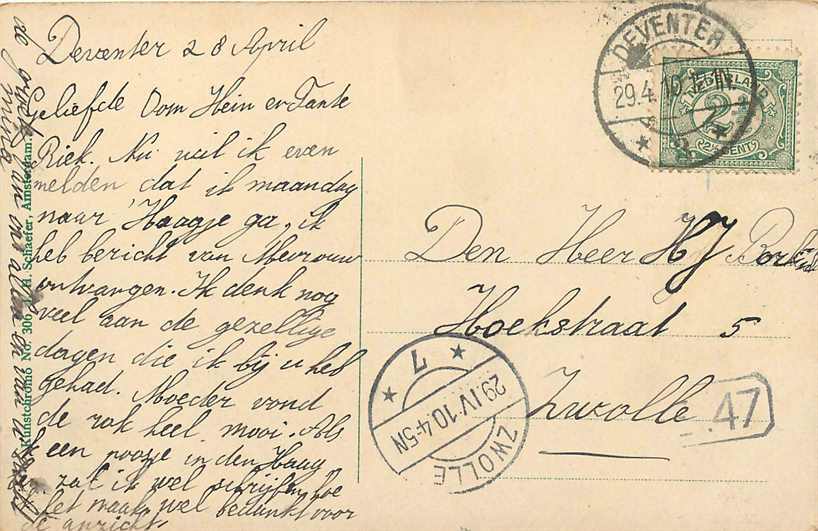 Deventer 28 April
Geliefde Oom Hein en Tante
Riek. Nu wil ik even
melden dat ik maandag
naar 'Haagje ga, ik
heb bericht van Mevrouw
ontvangen. Ik denk nog
veel aan de gezellige
dagen die ik bij u heb
gehad. Moeder vond
de rok heel mooi. Als
ik een poozje in den Haag
zal ik wel schrijfen hoe
het maak, wel bedankt voor
de anzicht.
de groeten van ons allen en van u
Mina
Kunstchromo No. 306 J. H. Schaefer, Amsterdam.
DEVENTER
29.4.10 1-1N
2
NEDERLAND
2½
2½ CENT
Den Heer H J
Hoekstraat 5
Zwolle
7
29 IV 10.4-5N
ZWOLLE
47